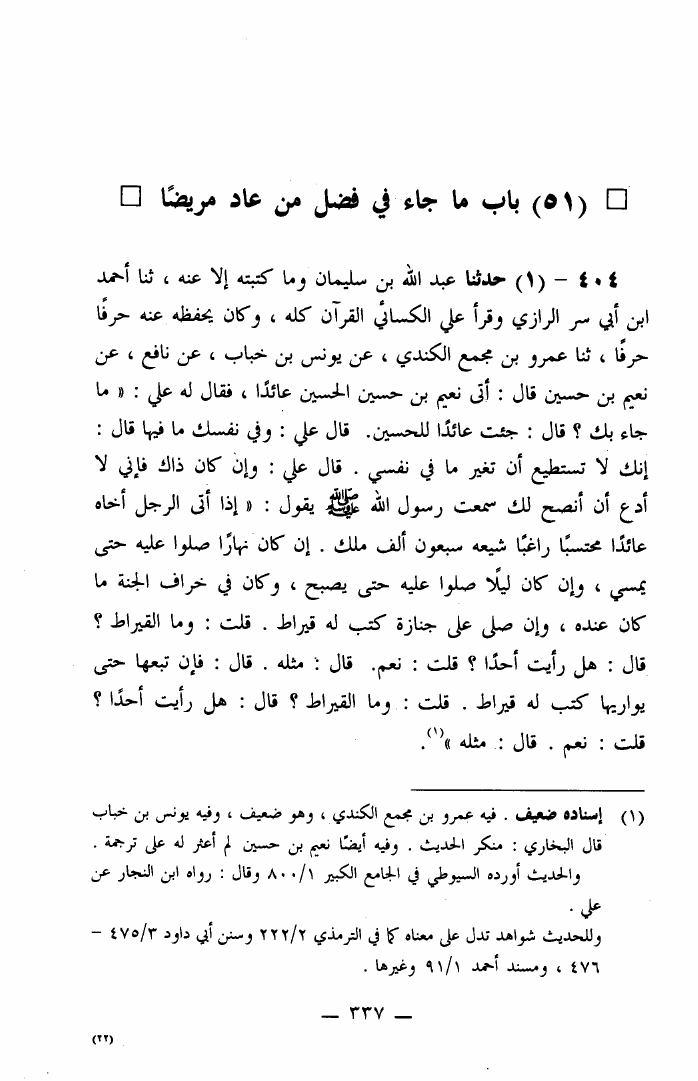 □ (٥١) باب ما جاء في فضل من عاد مريضًا □
٤٠٤ – (١) حدثنا عبد الله بن سليمان وما كتبته إلا عنه ، ثنا أحمد
ابن أبي سر الرازي وقرأ علي الكسائي القرآن كله ، وكان يحفظه عنه حرفًا
حرفًا ، ثنا عمرو بن مجمع الكندي ، عن يونس بن خباب ، عن نافع ، عن
نعيم بن حسين قال : أتى نعيم بن حسين الحسين عائدًا ، فقال له علي : « ما
جاء بك ؟ قال : جئت عائدًا للحسين. قال علي : وفي نفسك ما فيها قال :
إنك لا تستطيع أن تغير ما في نفسي . قال علي : وإن كان ذاك فإني لا
أدع أن أنصح لك سمعت رسول الله ﷺ يقول : « إذا أتى الرجل أخاه
عائدًا محتسبًا راغبًا شيعه سبعون ألف ملك . إن كان نهارًا صلوا عليه حتى
يمسي ، وإن كان ليلًا صلوا عليه حتى يصبح ، وكان في خراف الجنة ما
كان عنده ، وإن صلى على جنازة كتب له قيراط . قلت : وما القيراط ؟
قال : هل رأيت أحدًا ؟ قلت : نعم. قال : مثله . قال : فإن تبعها حتى
يواريها كتب له قيراط . قلت : وما القيراط ؟ قال : هل رأيت أحدًا ؟
قلت : نعم . قال : مثله »(١).
(١) إسناده ضعيف . فيه عمرو بن مجمع الكندي ، وهو ضعيف ، وفيه يونس بن خباب
قال البخاري : منكر الحديث . وفيه أيضًا نعيم بن حسين لم أعثر له على ترجمة .
والحديث أورده السيوطي في الجامع الكبير ٨٠٠/١ وقال : رواه ابن النجار عن
علي .
وللحديث شواهد تدل على معناه كما في الترمذي ٢٢٢/٢ وسنن أبي داود ٤٧٥/٣ –
٤٧٦ ، ومسند أحمد ٩١/١ وغيرها .
– ٣٣٧ –
(٢٢)